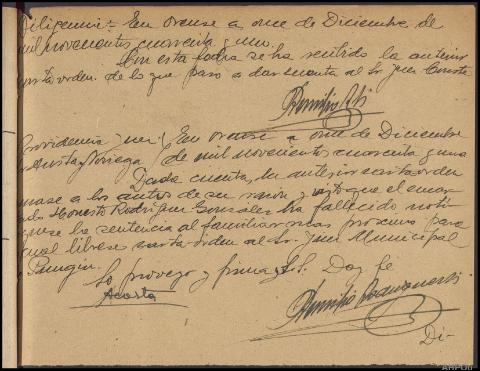 Diligencia = En orense a once de Diciembre de
mil novecientos cuarenta y uno.
Con esta fecha se ha recibido la anterior
carta orden de lo que paso a dar cuenta al Sr. Juez Acosta
Providencia Juez En orense a once de Diciembre
Acosta Noriega de mil novecientos cuarenta y uno
Dada cuenta, la anterior carta orden
unase a los autos de su razon y visto que el encar
Honesto Rodriguez González ha fallecido noti
quese la sentencia al familiar mas proximo para
cual librese carta-orden al Sr. Juez Municipal
Pungin.
Lo proveyo y firma S.S. Doy fe
Acosta
Di-